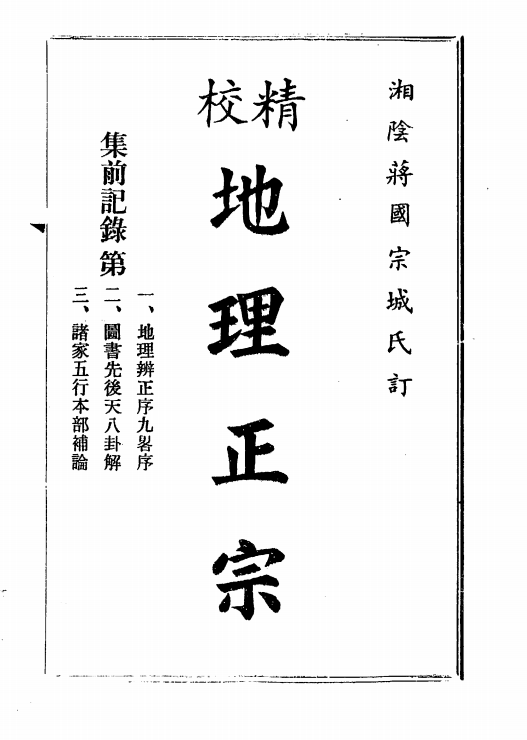 湘陰蔣國宗城氏訂
精校
地理正宗
集前記錄第
一、地理辨正序九畧序
二、圖書先後天八卦解
三、諸家五行本部補論